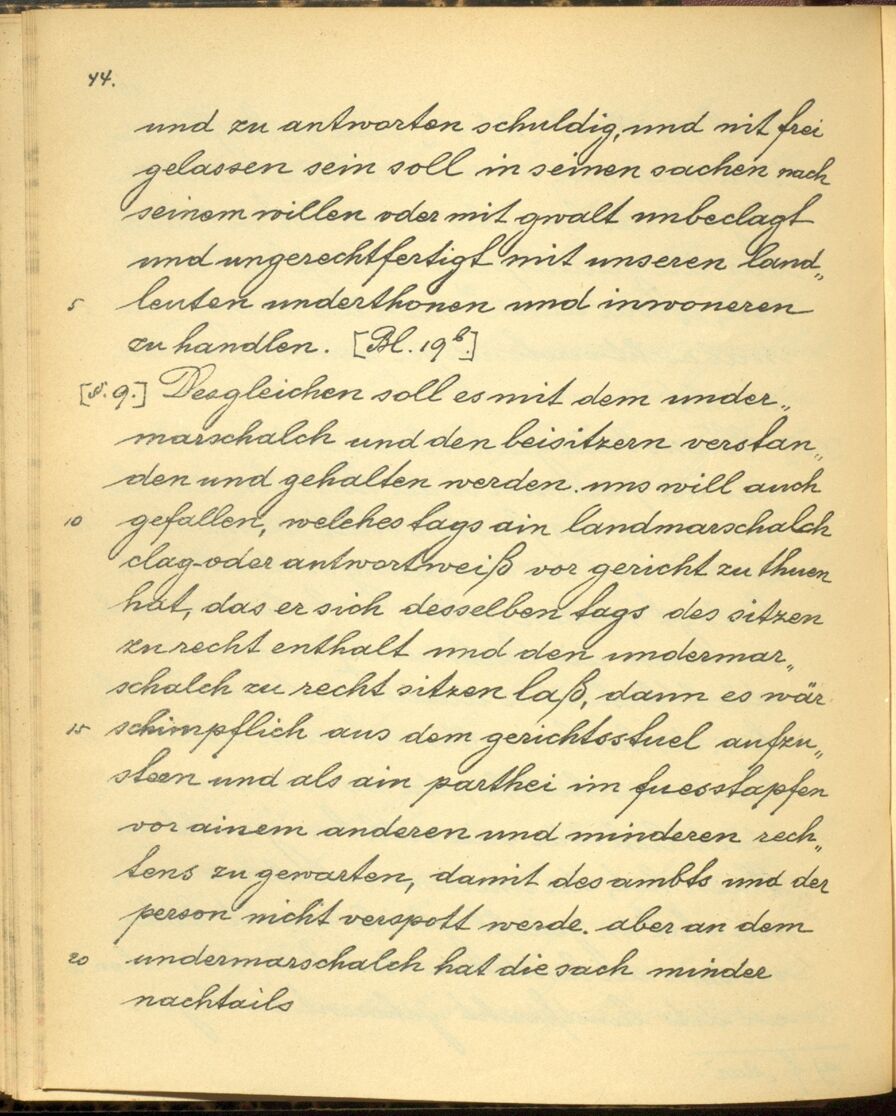 44.
und zu antworten schuldig, und nit frei
gelassen sein soll in seinen sachen nach
seinem willen oder mit gwalt unbeclagt
und ungerechtfertigt mit unseren land„
5 leuten underthonen und inwoneren
zu handlen. [Bl. 19b.]
[§. 9.] Desgleichen soll es mit dem under„
marschalch und den beisitzern verstan„
den und gehalten werden. uns will auch
10 gefallen, welches tags ain landmarschalch
clag- oder antwortweiß vor gericht zu thuen
hat, das er sich desselben tags des sitzen
zu recht enthalt und den undermar„
schalch zu recht sitzen laß, dann es wär
15 schimpflich aus dem gerichtsstuel aufzu„
steen und als ain parthei im fuesstapfen
vor ainem anderen und minderen rech„
tens zu gewarten, damit des ambts und der
person nicht verspott werde. aber an dem
20 undermarschalch hat die sach minder
nachtails